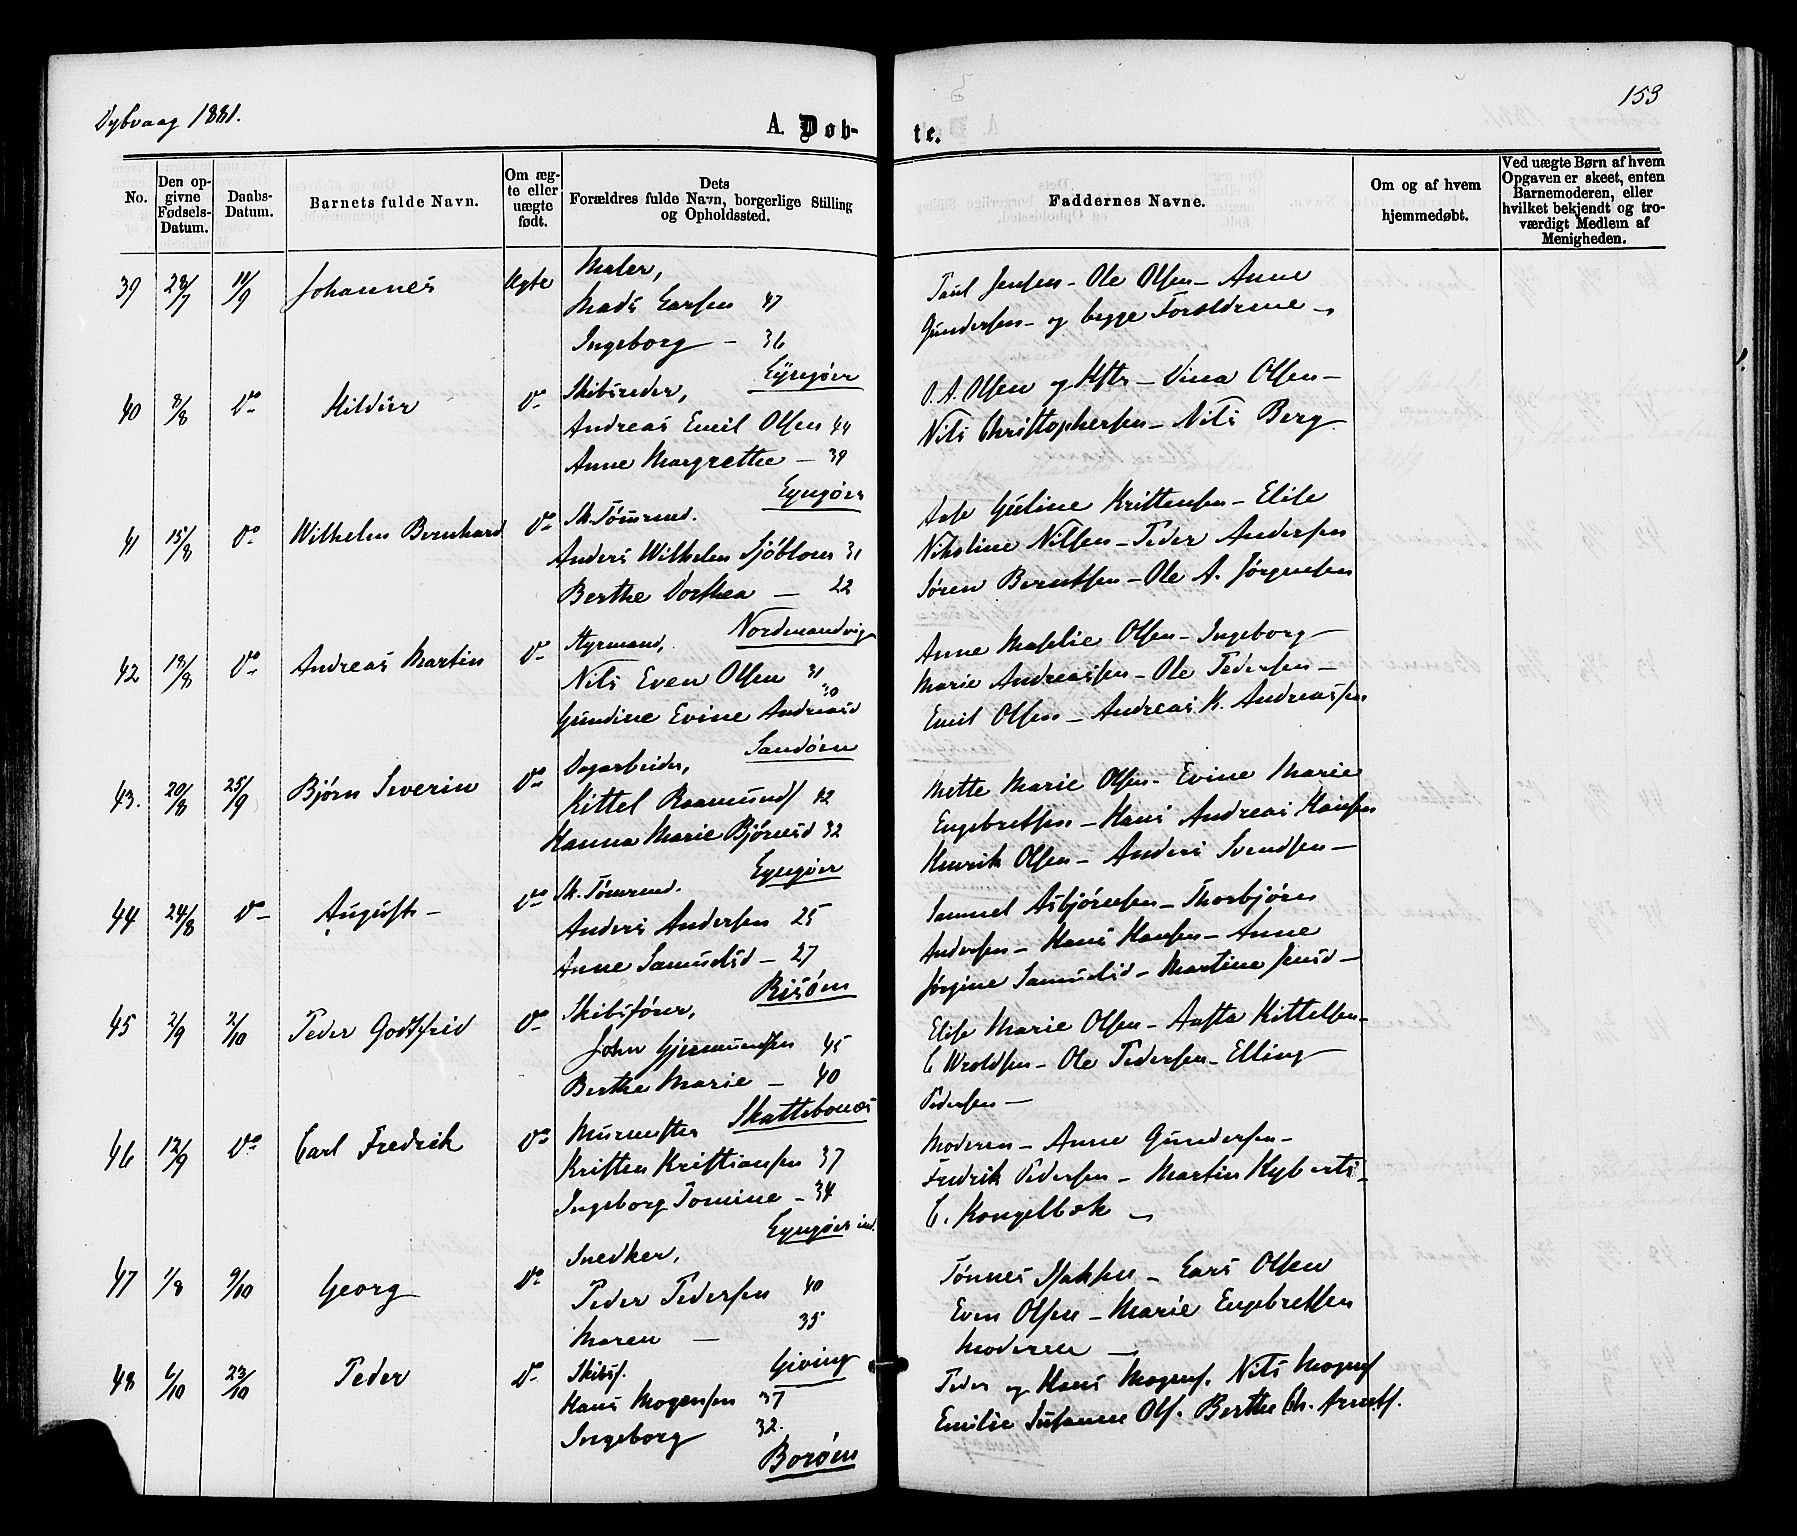 Dybvaag 1881.
153
A. Døb-
te.
No.
Den op-
givne
Fødsels-
Datum.
Daabs-
Datum.
Barnets fulde Navn.
Om æg-
te eller
uægte
født.
Dets
Forældres fulde Navn, borgerlige Stilling
og Opholdssted.
Faddernes Navne.
Om og af hvem
hjemmedøbt.
Ved uægte Børn af hvem
Opgaven er skeet, enten
Barnemoderen, eller
hvilket bekjendt og tro-
værdigt Medlem af
Menigheden.
39 28/7 11/9 Johannes Ægte Maler,
Mads Larsen 47
Ingeborg — 36
Lyngøer
Paul Jensen - Ole Olsen - Anne
Gundersen - og begge Forældrene -
40 8/8 Do Hildur Do Skibsreder,
Andreas Emil Olsen 44
Anne Margrethe — 39
Lyngøer
O. A. Olsen og Hstr - Vina Olsen -
Nils Christophersen - Nils Berg
41 15/8 Do Wilhelm Bernhard Do Sk. Tømmd.
Anders Wilhelm Sjöblom 31
Berthe Dorthea — 22
Nordmandvig
Aase Guline Kristensen - Elise
Nikoline Nilsen - Peder Andersen
Søren Berntsen - Ole A. Jørgensen
42 18/8 Do Andreas Martin Do Styrmand,
Nils Even Olsen 31
Gundine Evine Andreasd 30
Sandøen
Anne Maselie Olsen - Ingeborg
Marie Andreassen - Ole Pedersen -
Emil Olsen - Andreas K. Andreassen
43. 20/8 25/9 Bjørn Severin Do Dagarbeider,
Kittel Roamunds 42
Hanna Marie Bjørnsd 32
Lyngøer
Mette Marie Olsen - Evine Marie
Engebretsen - Hans Andreas Hansen
Henrik Olsen - Anders Svendsen -
44 24/8 Do August - Do Sk. Tømmd.
Anders Andersen 25
Anne Samuelsd - 27
Risøen
Samuel Asbjørnsen - Thorbjørn
Andersen - Hans Hansen - Anne
Jørgine Samuelsd - Martine Jensd -
45 2/9 2/10 Peder Godtfrid Do Skibsfører,
John Gjermundsen 45
Berthe Marie — 40
Skattebonæs
Elise Marie Olsen - Aasta Kittelsen -
C Wroldsen - Ole Pedersen - Elling
Pedersen -
46 12/9 Do Carl Fredrik Do Murmester
Kristen Kristiansen 37
Ingeborg Tomine - 34
Lyngøer ind.
Moderen - Anne Gundersen -
Fredrik Pedersen - Martin Hyberts -
C. Kongelbæk -
47 1/8 9/10 Georg Do Snedker,
Peder Pedersen 40
Maren — 35
Giving
Tønnes Isaksen - Lars Olsen
Even Olsen - Marie Engebretsen
Moderen -
48 6/10 23/10 Peder Do Skibsf.
Hans Mogensen 37
Ingeborg 32.
Borøen
Peder og Hans Mogens. Nils Mogens
Emilie Susanne Ols. Berthe Ch. Arnets.